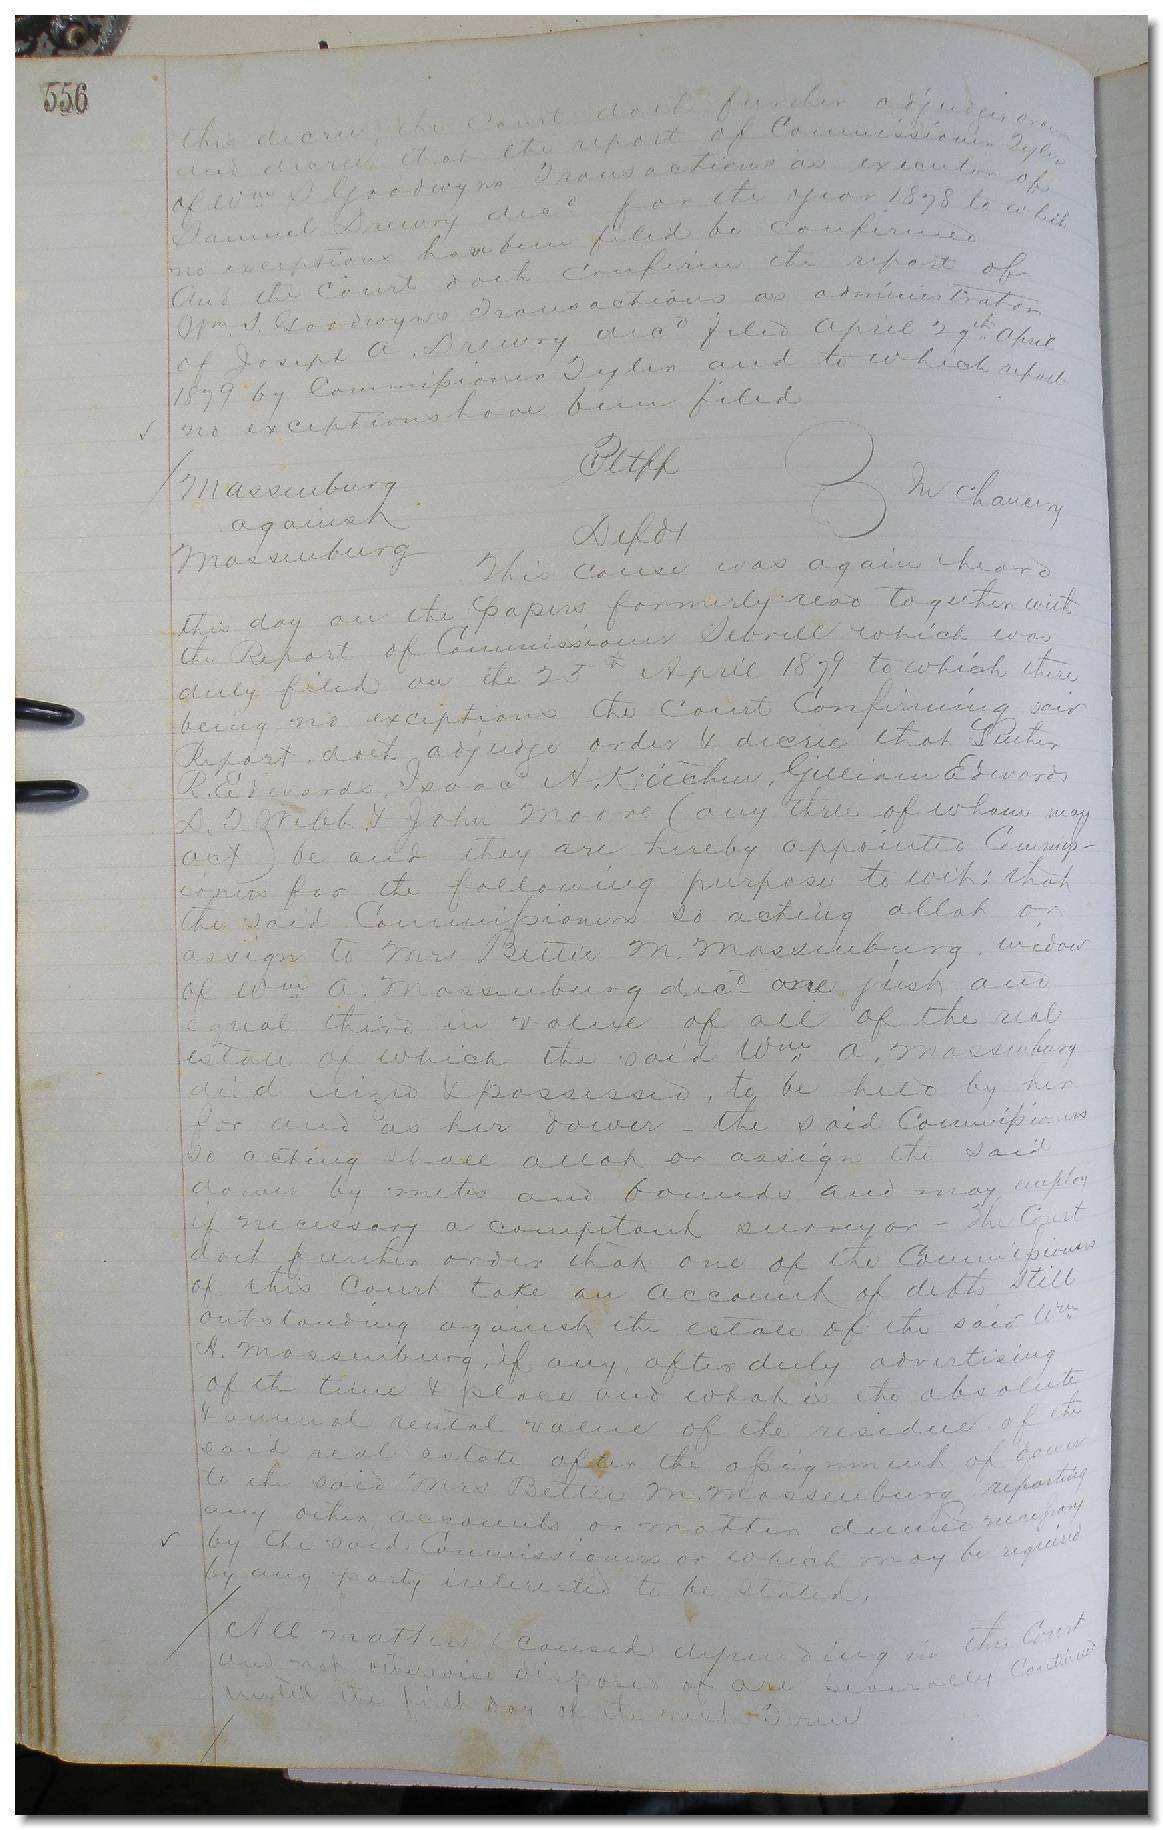 556
this decree, the Court doth further adjudge order
and decree that the report of Commissioner Tyler
of Wm S Goodwyns Transactions as executor of
Samuel Drewry decd for the year 1878 to which
no exceptions have been filed be confirmed
And the Court doth confirm the report of
Wm S. Goodwyns Transactions as administrator
of Joseph A. Drewry decd filed April 29th April
1879 by Commissioner Tyler and to which report
no exceptions have been filed
Massenburg Pltff
against In Chancery
Massenburg Defdt
This cause was again heard
this day on the papers formerly read together with
the Report of Commissioner Sebrell which was
duly filed on the 25th April 1879 to which there
being no exceptions the Court Confirming said
Report doth adjudge order & decree that
R. Edwards, Isaac A. Kitchen, Gilliam Edwards
D. T. Webb & John Moore (any three of whom may
act) be and they are hereby appointed Commiss-
ioners for the following purpose to wit: that
the said Commissioners so acting allot or
assign to Mrs Bettie M. Massenburg, widow
of Wm A. Massenburg decd one just and
equal third in value of all of the real
estate of which the said Wm A. Massenburg
died siezed & possessed, to be held by her
for and as her dower – the said Commissioners
So acting shall allot or assign the said
dower by metes and bounds and may employ
if necessary a competant surveyor – The Court
doth further order that one of the Commissioners
of this Court take an account of debts still
outstanding against the estate of the said Wm
A. Massenburg, if any, after duly advertising
of th time & place and what is the absolute
& annual rental value of the residue of the
said real estate after the assignment of dower
to the said Mrs Bettie M. Massenburg reporting
any other accounts or matters deemed necessary
by the said Commissioners or which may be required
by any party interested to be stated.
All matters & causes depending in this Court
and not otherwise disposed of are severally Continued
until the first day of the next Term